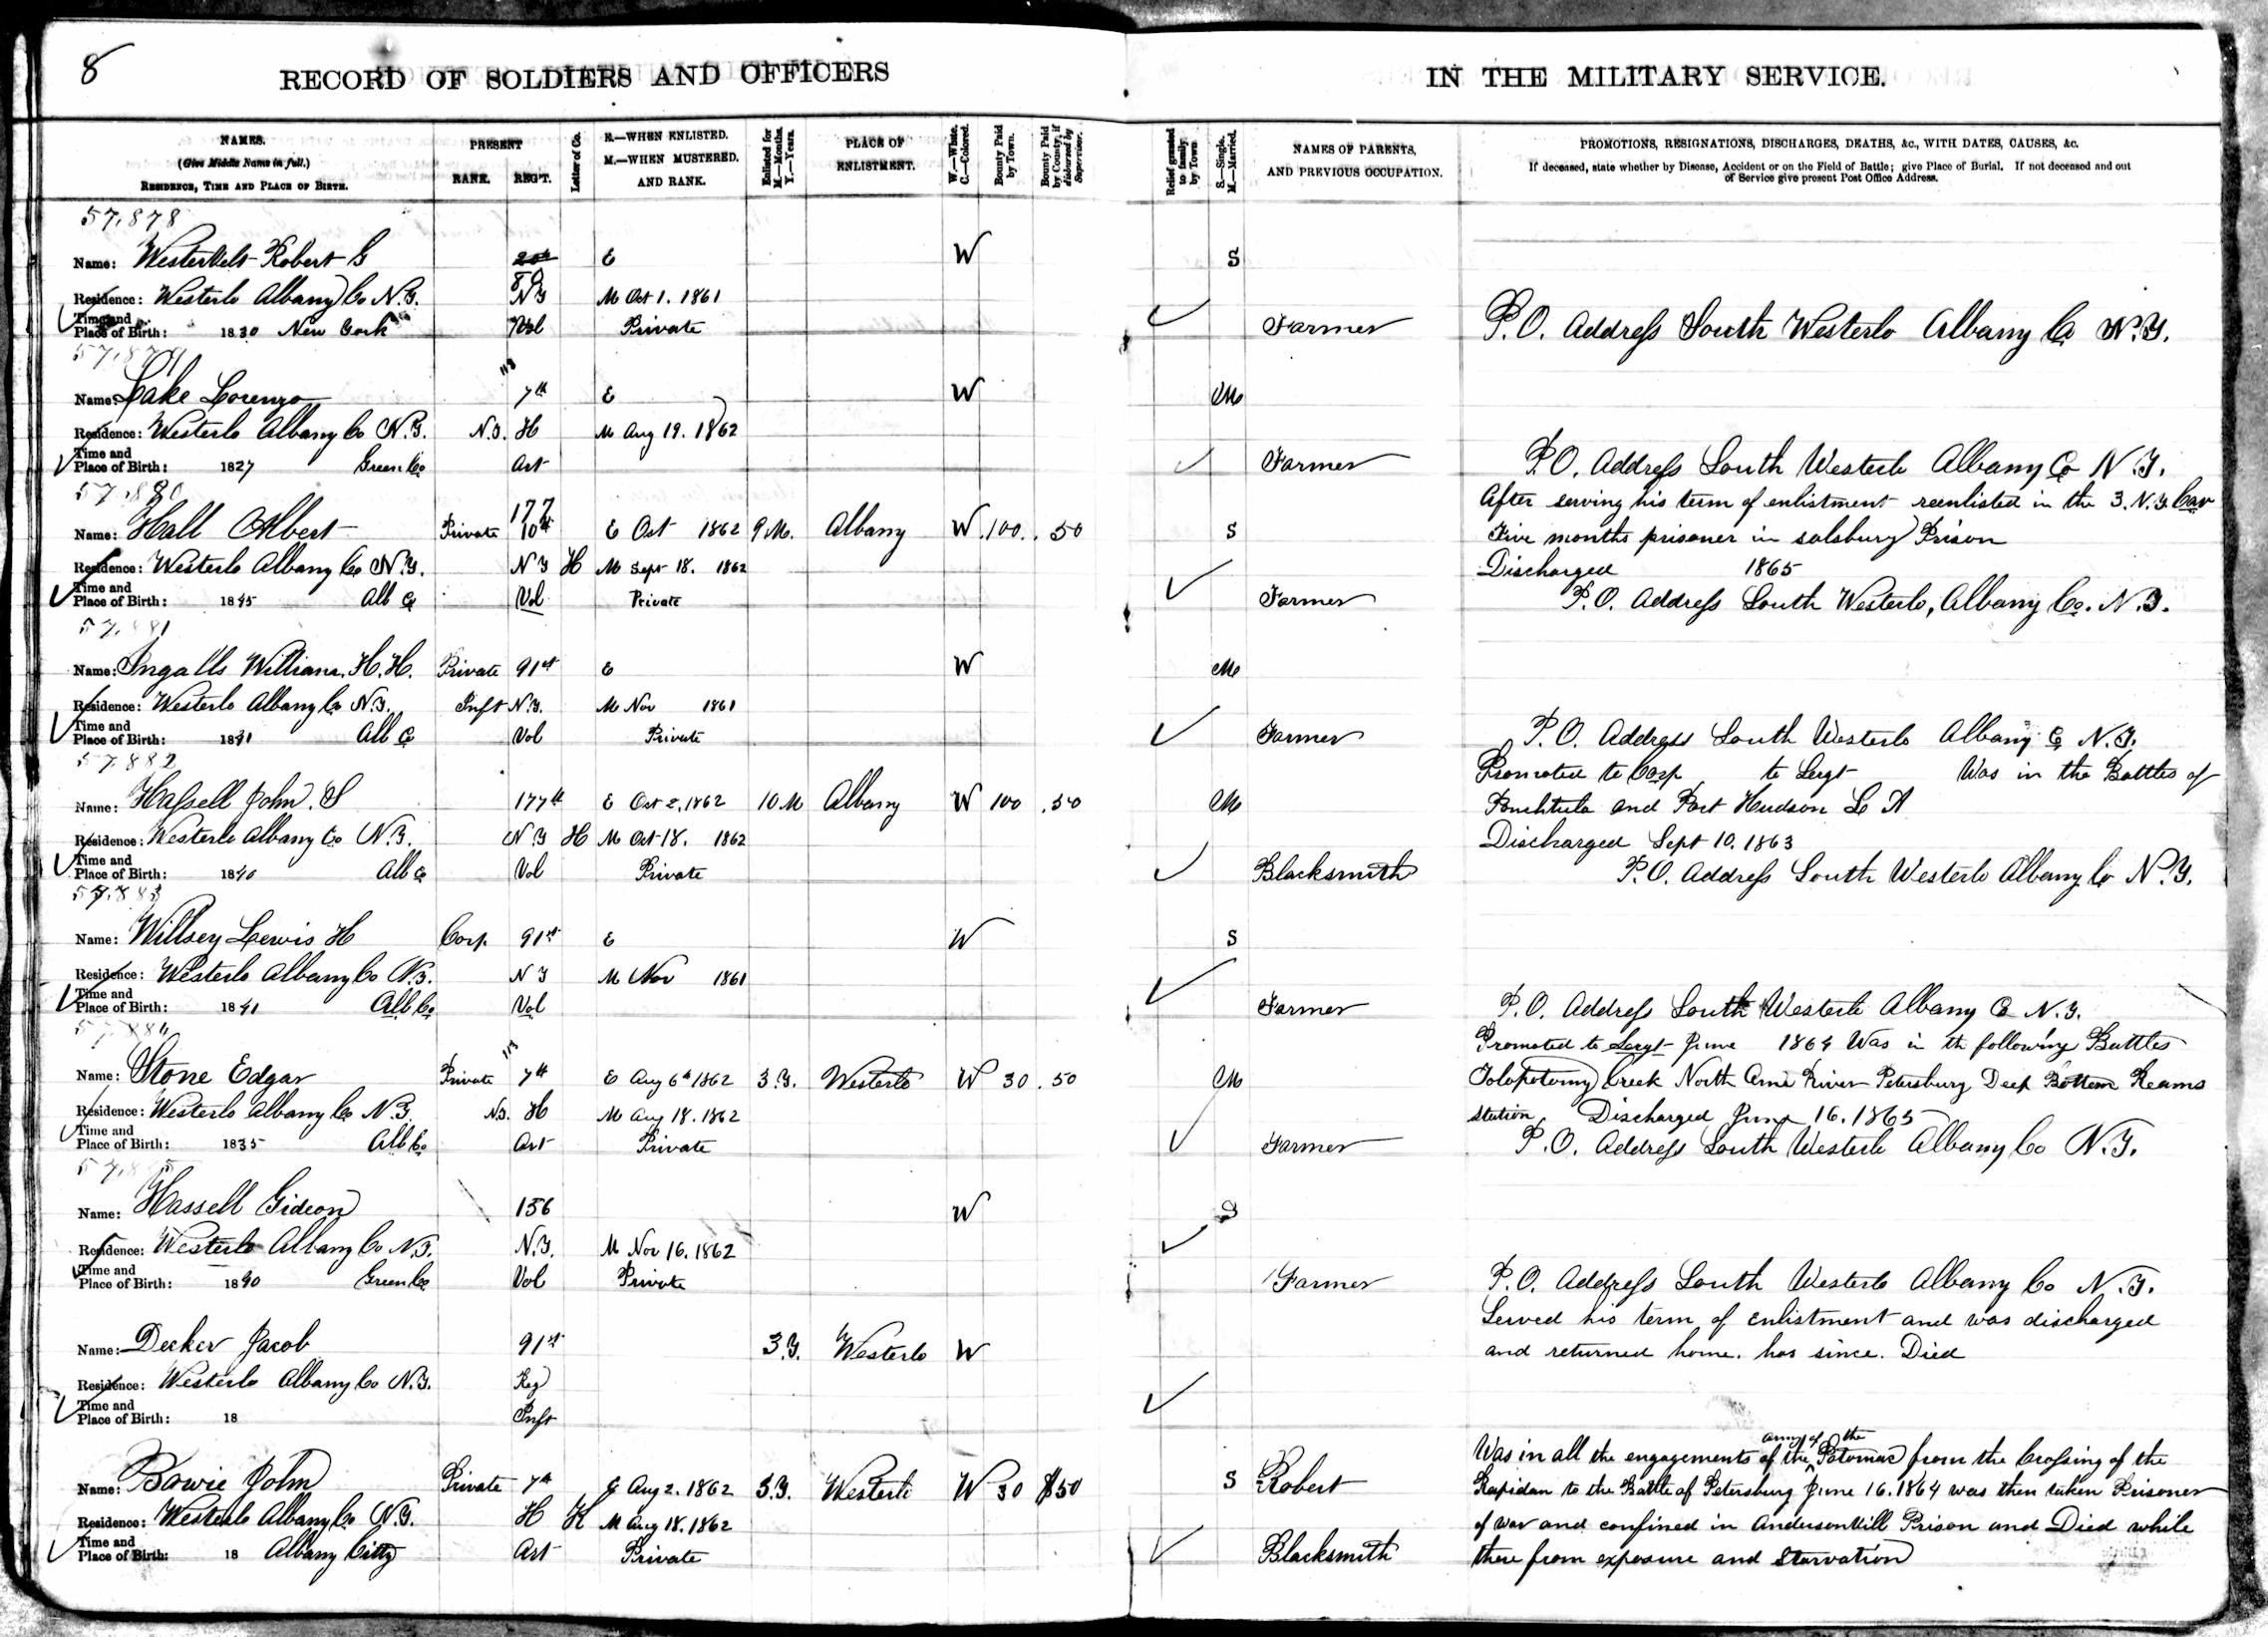 8
RECORD OF SOLDIERS AND OFFICERS
IN THE MILITARY SERVICE.
NAMES.
(Give Middle Name in full.)
RESIDENCE, TIME AND PLACE OF BIRTH.
PRESENT
RANK. REG'T.
Letter of Co.
E.—WHEN ENLISTED.
M.—WHEN MUSTERED.
AND RANK.
Enlisted for
M.—Months.
Y.—Years.
PLACE OF
ENLISTMENT.
W.—White.
C.—Colored.
Bounty Paid
by Town.
Bounty Paid
by County, if
disbursed by
Supervisor.
Relief granted
to family
by Town.
S.—Single.
M.—Married.
NAMES OF PARENTS,
AND PREVIOUS OCCUPATION.
PROMOTIONS, RESIGNATIONS, DISCHARGES, DEATHS, &c., WITH DATES, CAUSES, &c.
If deceased, state whether by Disease, Accident or on the Field of Battle; give Place of Burial. If not deceased and out
of Service give present Post Office Address.
57,878
Name: Westervelt Robert G 20th E W S
Residence: Westerlo Albany Co N.Y. 80 N Y M Oct 1. 1861
Time and
Place of Birth: 1830 New York Vol Private Farmer P.O. Address South Westerlo Albany Co N.Y.
57,879
113
Name: Lake Lorenzo 7th E W M
Residence: Westerlo Albany Co N.Y. N.Y. H M Aug 19. 1862
Time and
Place of Birth: 1827 Green Co Art Farmer P.O. Address South Westerlo Albany Co N.Y.
57,880
177
After serving his term of enlistment reenlisted in the 3. N.Y. Cav
Name: Hall Albert Private 10th E Oct 1862 9 M. Albany W 100. . 50 S Five months prisoner in salsbury Prison
Residence: Westerlo Albany Co N.Y. N Y H M Sept 18. 1862 Discharged 1865
Time and
Place of Birth: 1845 Alb Co Vol Private Farmer P.O. Address South Westerlo, Albany Co. N.Y.
57,881
Name: Ingalls William. H. H. Private 91st E W M
Residence: Westerlo Albany Co N.Y. Inft N.Y. M Nov 1861
Time and
Place of Birth: Alb Co Vol Private Farmer P.O. Address South Westerlo Albany Co N.Y.
57,882
Promoted to Corp to Sergt Was in the Battles of
Name: Hassell John. S 177th E Oct 2, 1862 10 M Albany W 100 . 50 M and Port Hudson L A
Residence: Westerlo Albany Co N.Y. N.Y H M Oct 18. 1862 Discharged Sept 10. 1863
Time and
Place of Birth: 1840 Alb Co Vol Private Blacksmith P.O. Address South Westerlo Albany Co N.Y.
57,883
Name: Willsey Lewis H Corp 91st E W S
Residence: Westerlo Albany Co N.Y. N Y M Nov 1861
Time and
Place of Birth: 1841 Alb Co Vol Farmer P.O. Address South Westerlo Albany Co N.Y.
57,884
113
Promoted to Sergt June 1864 Was in th following Battles
Name: Stone Edgar Private 7th E Aug 6th 1862 3.Y. Westerlo W 30 . 50 M Tolopotomy Creek North Anna River Petersburg Deep Bottom Reams
Residence: Westerlo Albany Co N.Y. N.Y. H M Aug 18. 1862 station Discharged June 16. 1865
Time and
Place of Birth: 1835 Alb Co Art Private Farmer P.O. Address South Westerlo Albany Co N.Y.
Name: Hassell Gideon 156 W S
Residence: Westerlo Albany Co N.Y. N.Y. M Nov 16. 1862
Time and
Place of Birth: 1840 Green Co Vol Private Farmer P.O. Address South Westerlo Albany Co N.Y.
Served his term of enlistment and was discharged
Name: Decker Jacob 91st 3.Y. Westerlo W and returned home. has since. Died
Residence: Westerlo Albany Co N.Y. Reg
Time and
Place of Birth: 18 Inft
army of the
Was in all the engagements of the Potomac from the Crossing of the
Name: Bowie John Private 7th E Aug 2. 1862 3.Y. Westerlo W 30 $50 S Robert Rapidan to the Battle of Petersburg June 16. 1864 was then taken Prisoner
Residence: Westerlo Albany Co N.Y. H K M Aug 18. 1862 of war and confined in Andersonvill Prison and Died while
Time and
Place of Birth: 18 Albany Citty Art Private Blacksmith there from exposure and Starvation